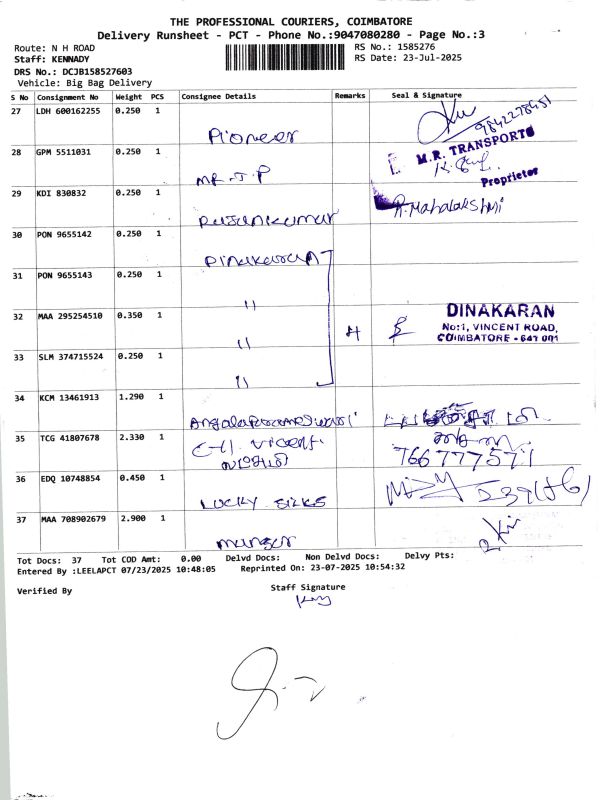 THE PROFESSIONAL COURIERS, COIMBATORE
Delivery Runsheet - PCT - Phone No.:9047080280 - Page No.:3
Route: N H ROAD
RS No.: 1585276
Staff: KENNADY
RS Date: 23-Jul-2025
DRS No.: DCJB158527603
Vehicle: Big Bag Delivery
S No Consignment No Weight PCS Consignee Details Remarks Seal & Signature
27 LDH 600162255 0.250 1
Pioneer
9842278451
28 GPM 5511031 0.250 1
M.R. TRANSPORTS
Proprietor
MR.J.P
29 KDI 830832 0.250 1
Rajankumar
R.Mahalakshmi
30 PON 9655142 0.250 1
Dinakaran
31 PON 9655143 0.250 1
"
32 MAA 295254510 0.350 1
"
4
DINAKARAN
No:1, VINCENT ROAD,
COIMBATORE - 641 001
33 SLM 374715524 0.250 1
"
34 KCM 13461913 1.290 1
Angalaparameswari
35 TCG 41807678 2.330 1
766 777 5171
36 EDQ 10748854 0.450 1
LUCKY SILKS
37 MAA 708902679 2.900 1
Tot Docs: 37 Tot COD Amt: 0.00 Delvd Docs: Non Delvd Docs: Delvy Pts:
Entered By :LEELAPCT 07/23/2025 10:48:05 Reprinted On: 23-07-2025 10:54:32
Verified By
Staff Signature